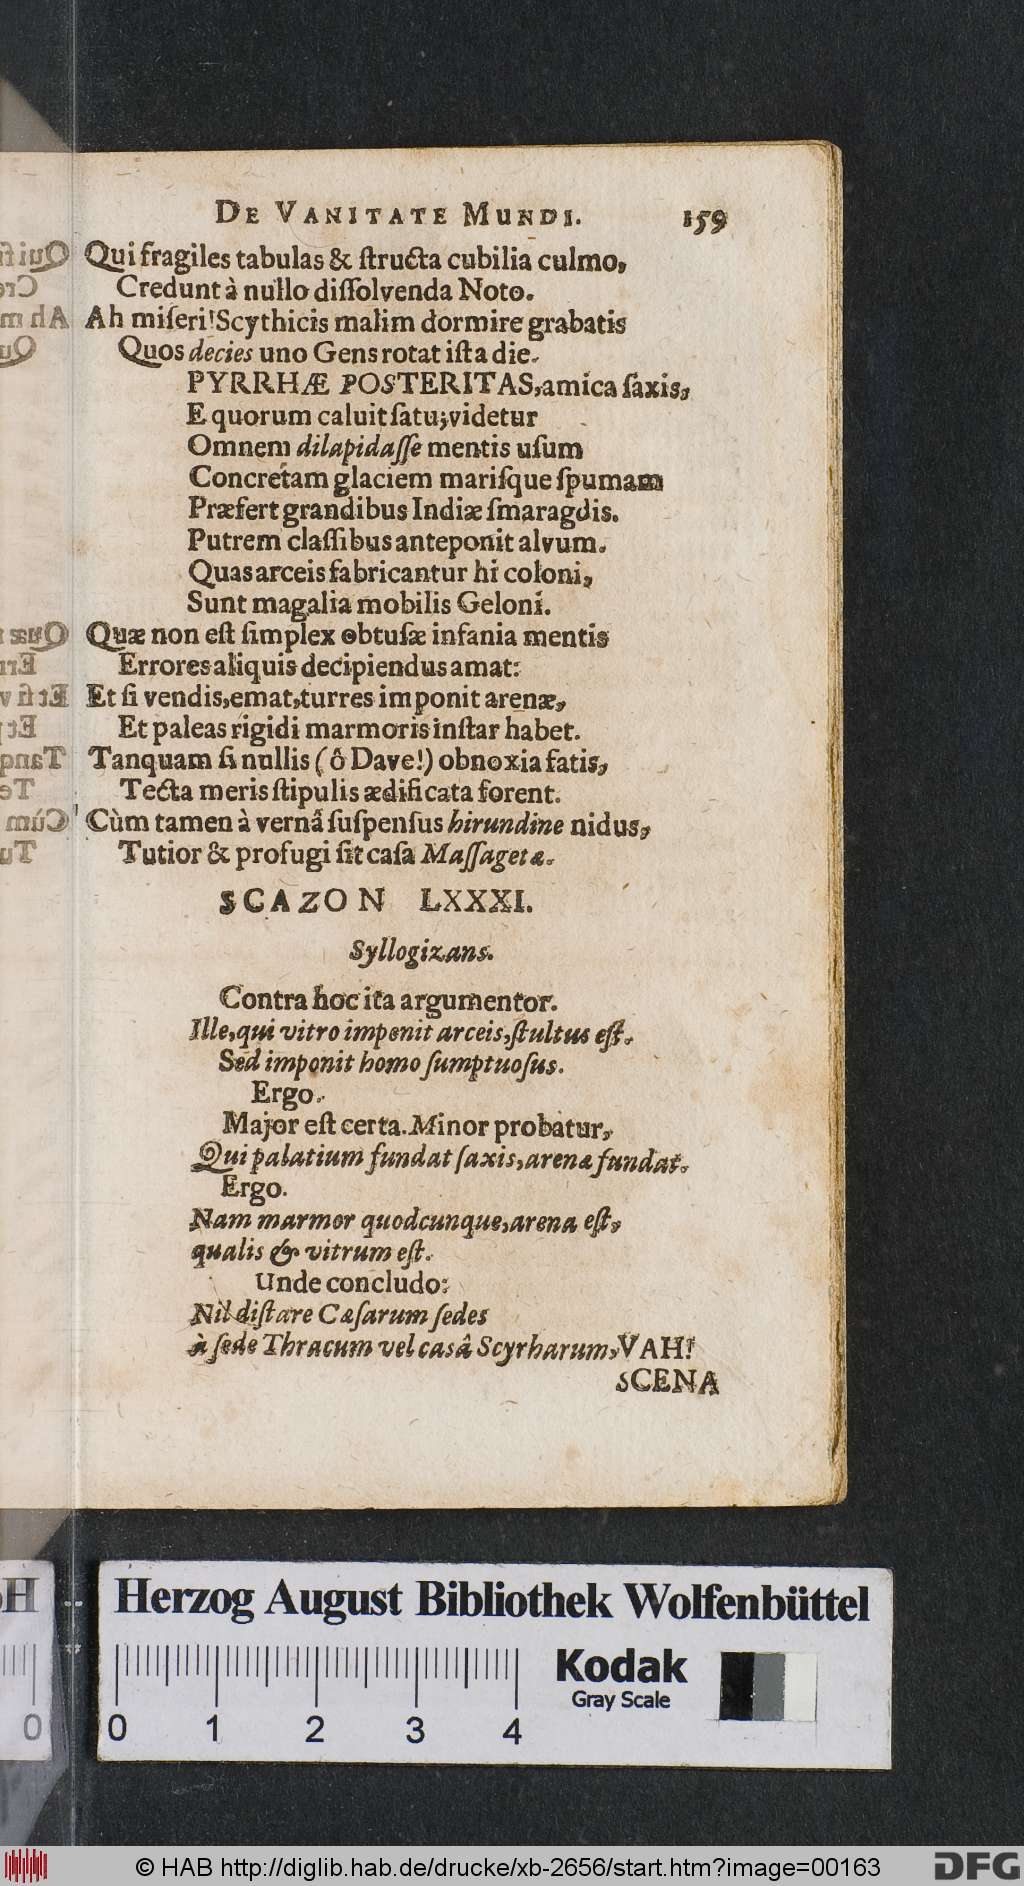 DE VANITATE MUNDI. 159
Qui fragiles tabulas & ſtructa cubilia culmo,
Credunt à nullo diſſolvenda Noto.
Ah miſeri! Scythicis malim dormire grabatis
Quos decies uno Gens rotat iſta die.
PYRRHÆ POSTERITAS, amica ſaxis,
E quorum caluit ſatu; videtur
Omnem dilapidaſſe mentis uſum
Concretam glaciem mariſque ſpumam
Præfert grandibus Indiæ ſmaragdis.
Putrem claſſibus anteponit alvum.
Quas arceis fabricantur hi coloni,
Sunt magalia mobilis Geloni.
Quæ non eſt ſimplex obtuſæ inſania mentis
Errores aliquis decipiendus amat:
Et ſi vendis, emat, turres imponit arenæ,
Et paleas rigidi marmoris inſtar habet.
Tanquam ſi nullis (ô Dave!) obnoxia fatis,
Tecta meris ſtipulis ædificata forent.
Cùm tamen à vernâ ſuſpenſus hirundine nidus,
Tutior & profugi ſit caſa Maſſagetæ.
SCAZON LXXXI.
Syllogizans.
Contra hoc ita argumentor.
Ille, qui vitro imponit arceis, ſtultus eſt.
Sed imponit homo ſumptuoſus.
Ergo.
Major eſt certa. Minor probatur,
Qui palatium fundat ſaxis, arenæ fundat.
Ergo.
Nam marmor quodcunque, arena eſt,
qualis & vitrum eſt.
Unde concludo:
Nil diſtare Cæſarum ſedes
à ſede Thracum vel casâ Scyrharum, VAH!
SCENA
Herzog August Bibliothek Wolfenbüttel
Kodak
Gray Scale
0 0 1 2 3 4
© HAB http://diglib.hab.de/drucke/xb-2656/start.htm?image=00163
DFG